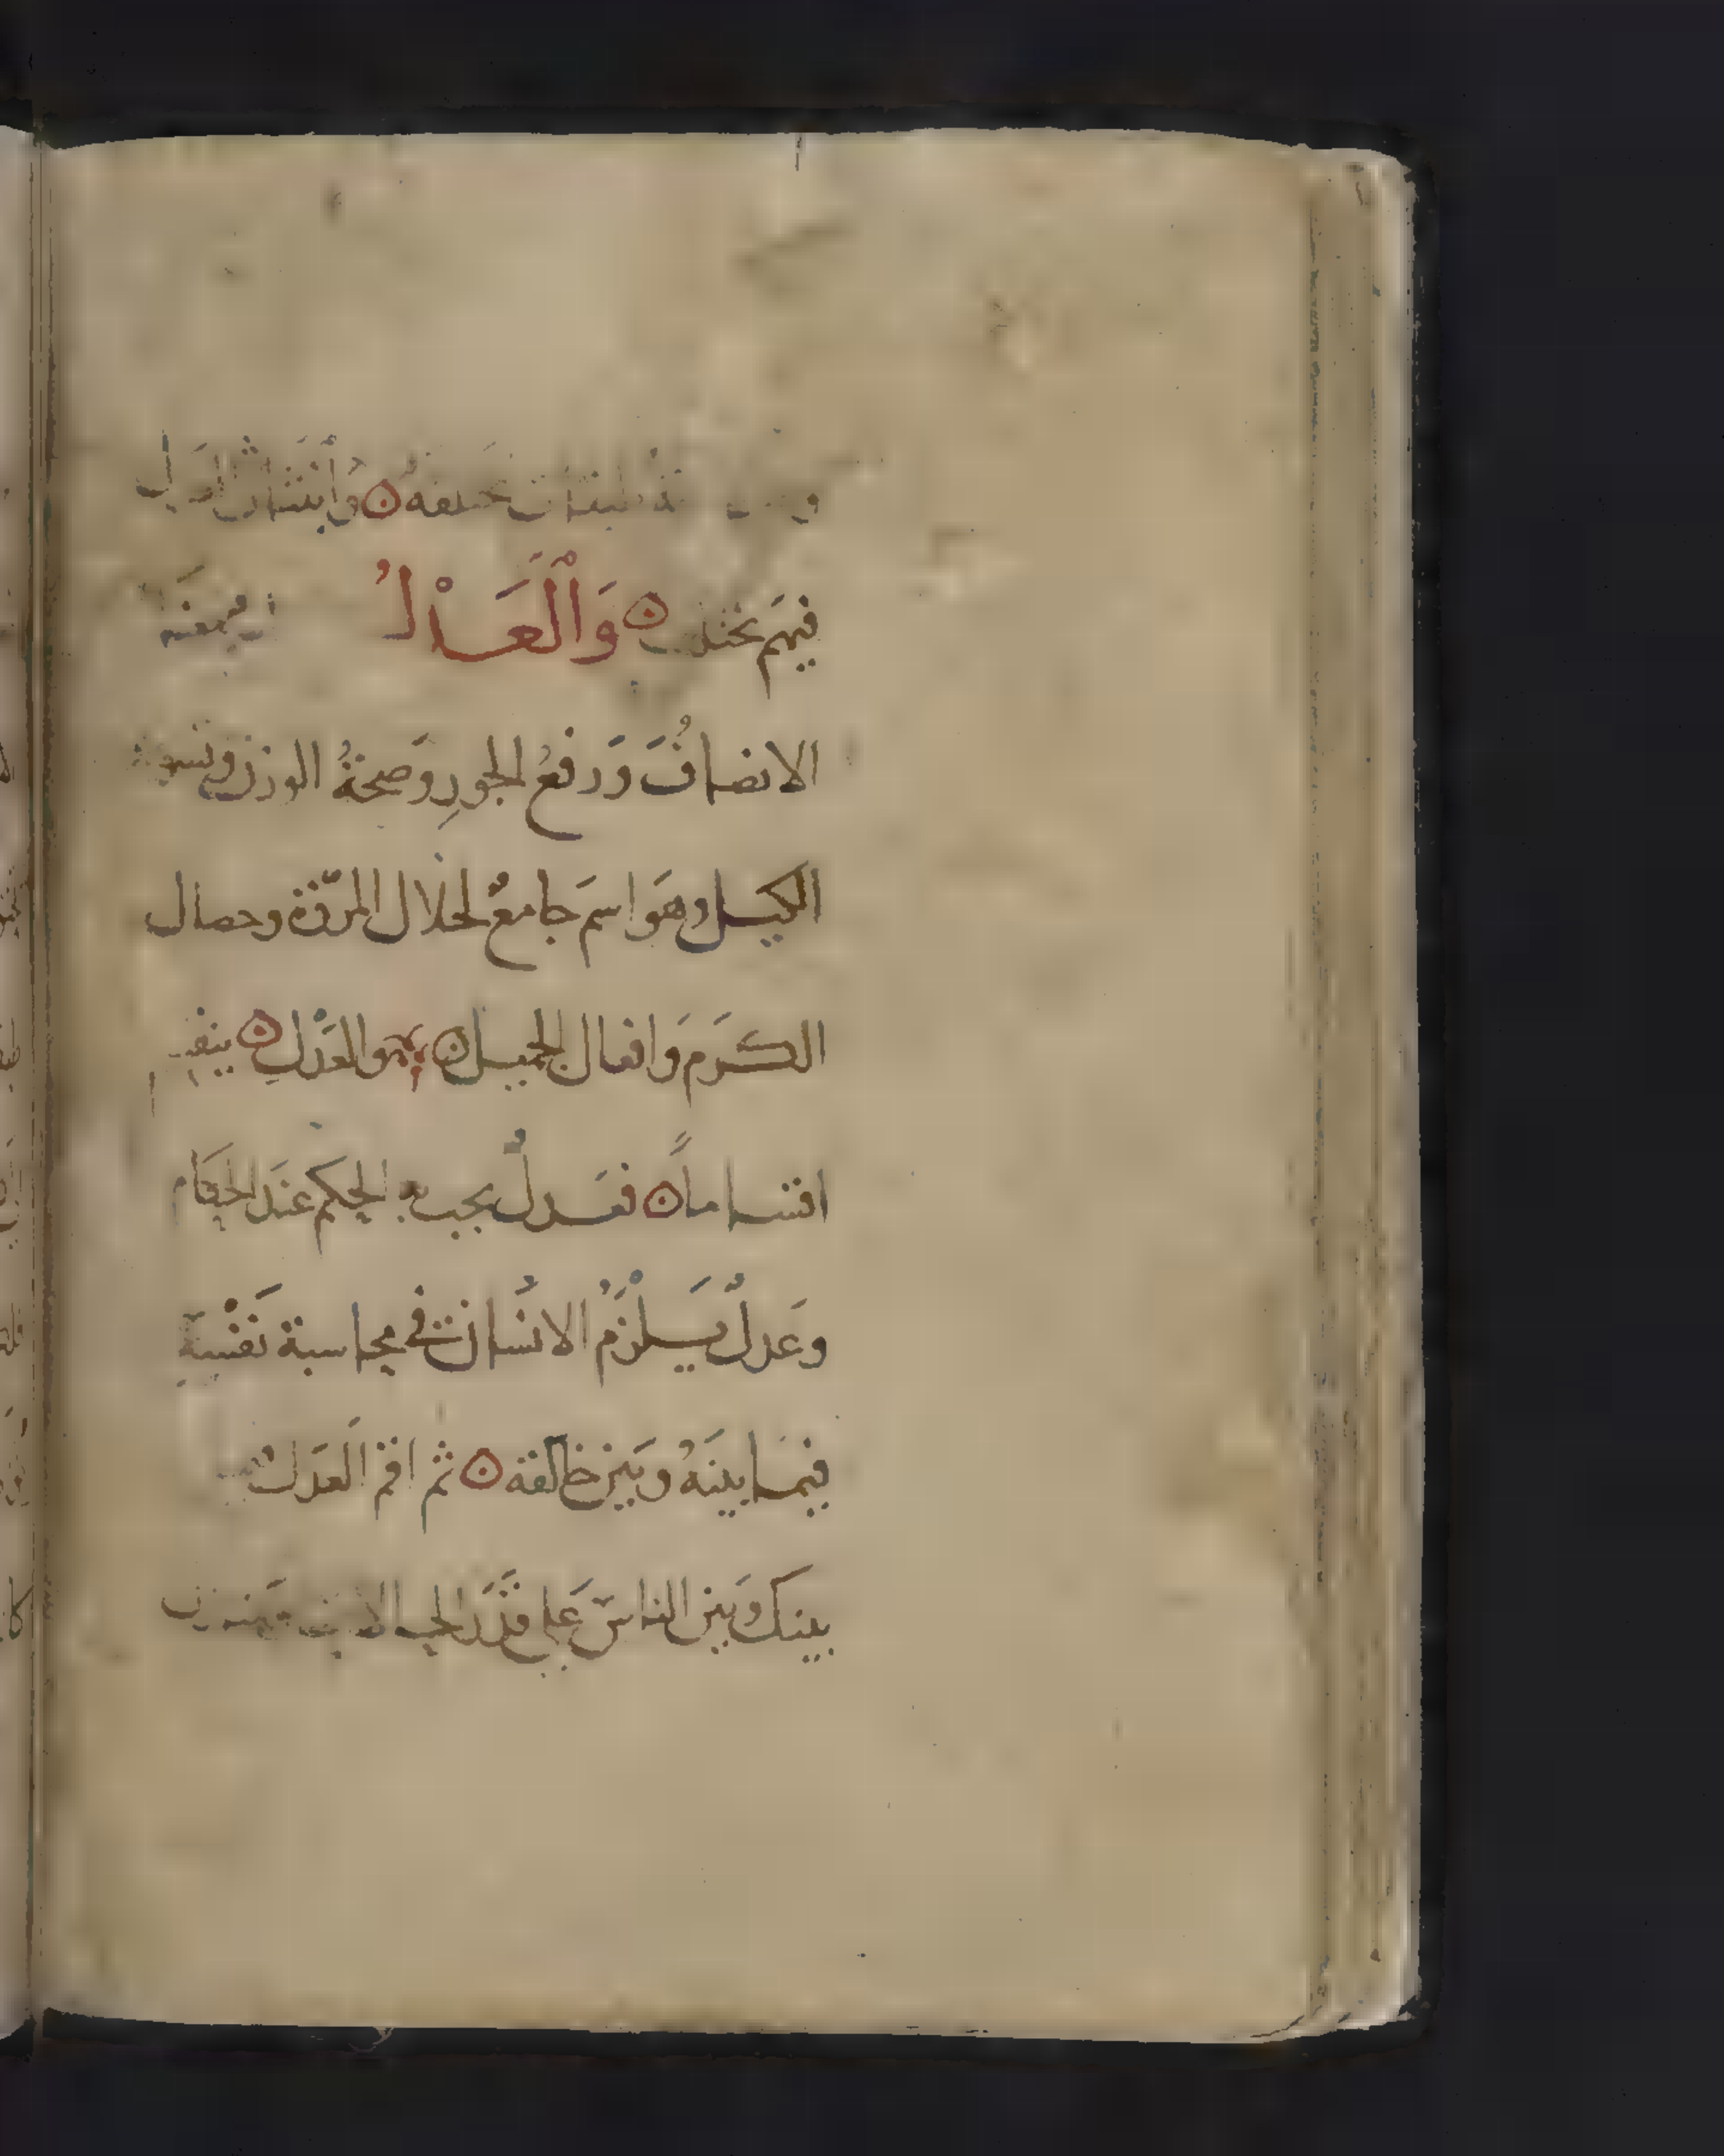 طبقات مختلفه ۞ وانتشار العدل
فيهم يختلف ۞ وَالْعَدْلُ
الانصافُ وَرفعُ الجورِ وَصحةُ الوزن وتسوية
الكيل وهَو اسم جَامعٌ لخلال المرّوة وخصال
الكَرَم وَافعال الجميل ۞ والعَدْل ۞ ينقسم
اقساماً ۞ فعَدلٌ يجب به الحكم عنَد الحكام
وعَدلٌ يَلْزَمُ الانسان في محاسبة نَفْسه
فيمَا بينَهُ وبَين خالقه ۞ ثم اقم العَدل
بينك وَبين الناس عَلى قَدَر